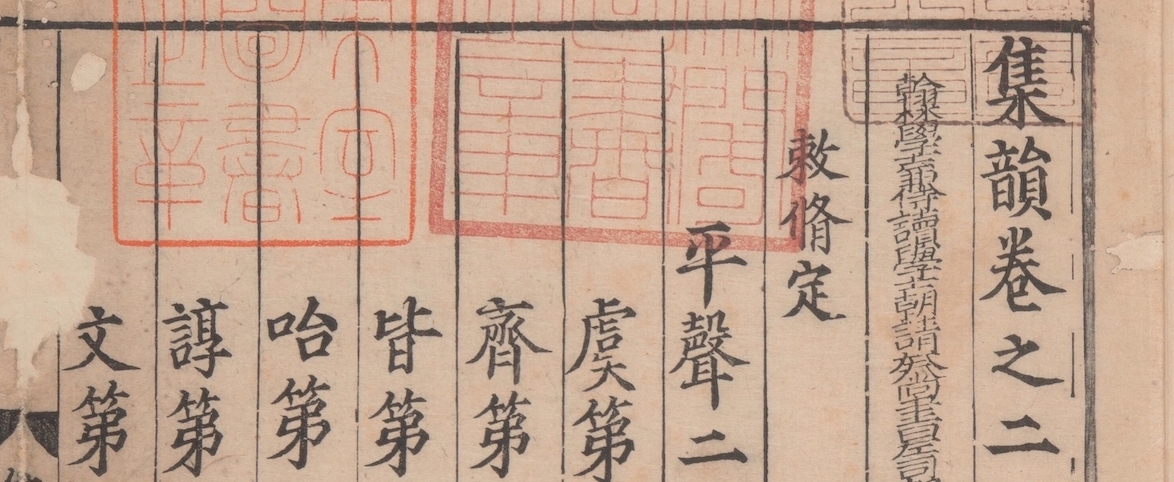 集韻卷之二
翰林學士兼侍讀學士朝請大夫尚書左司
敕脩定
平聲二
虞第
齊第
皆第
咍第
諄第
文第